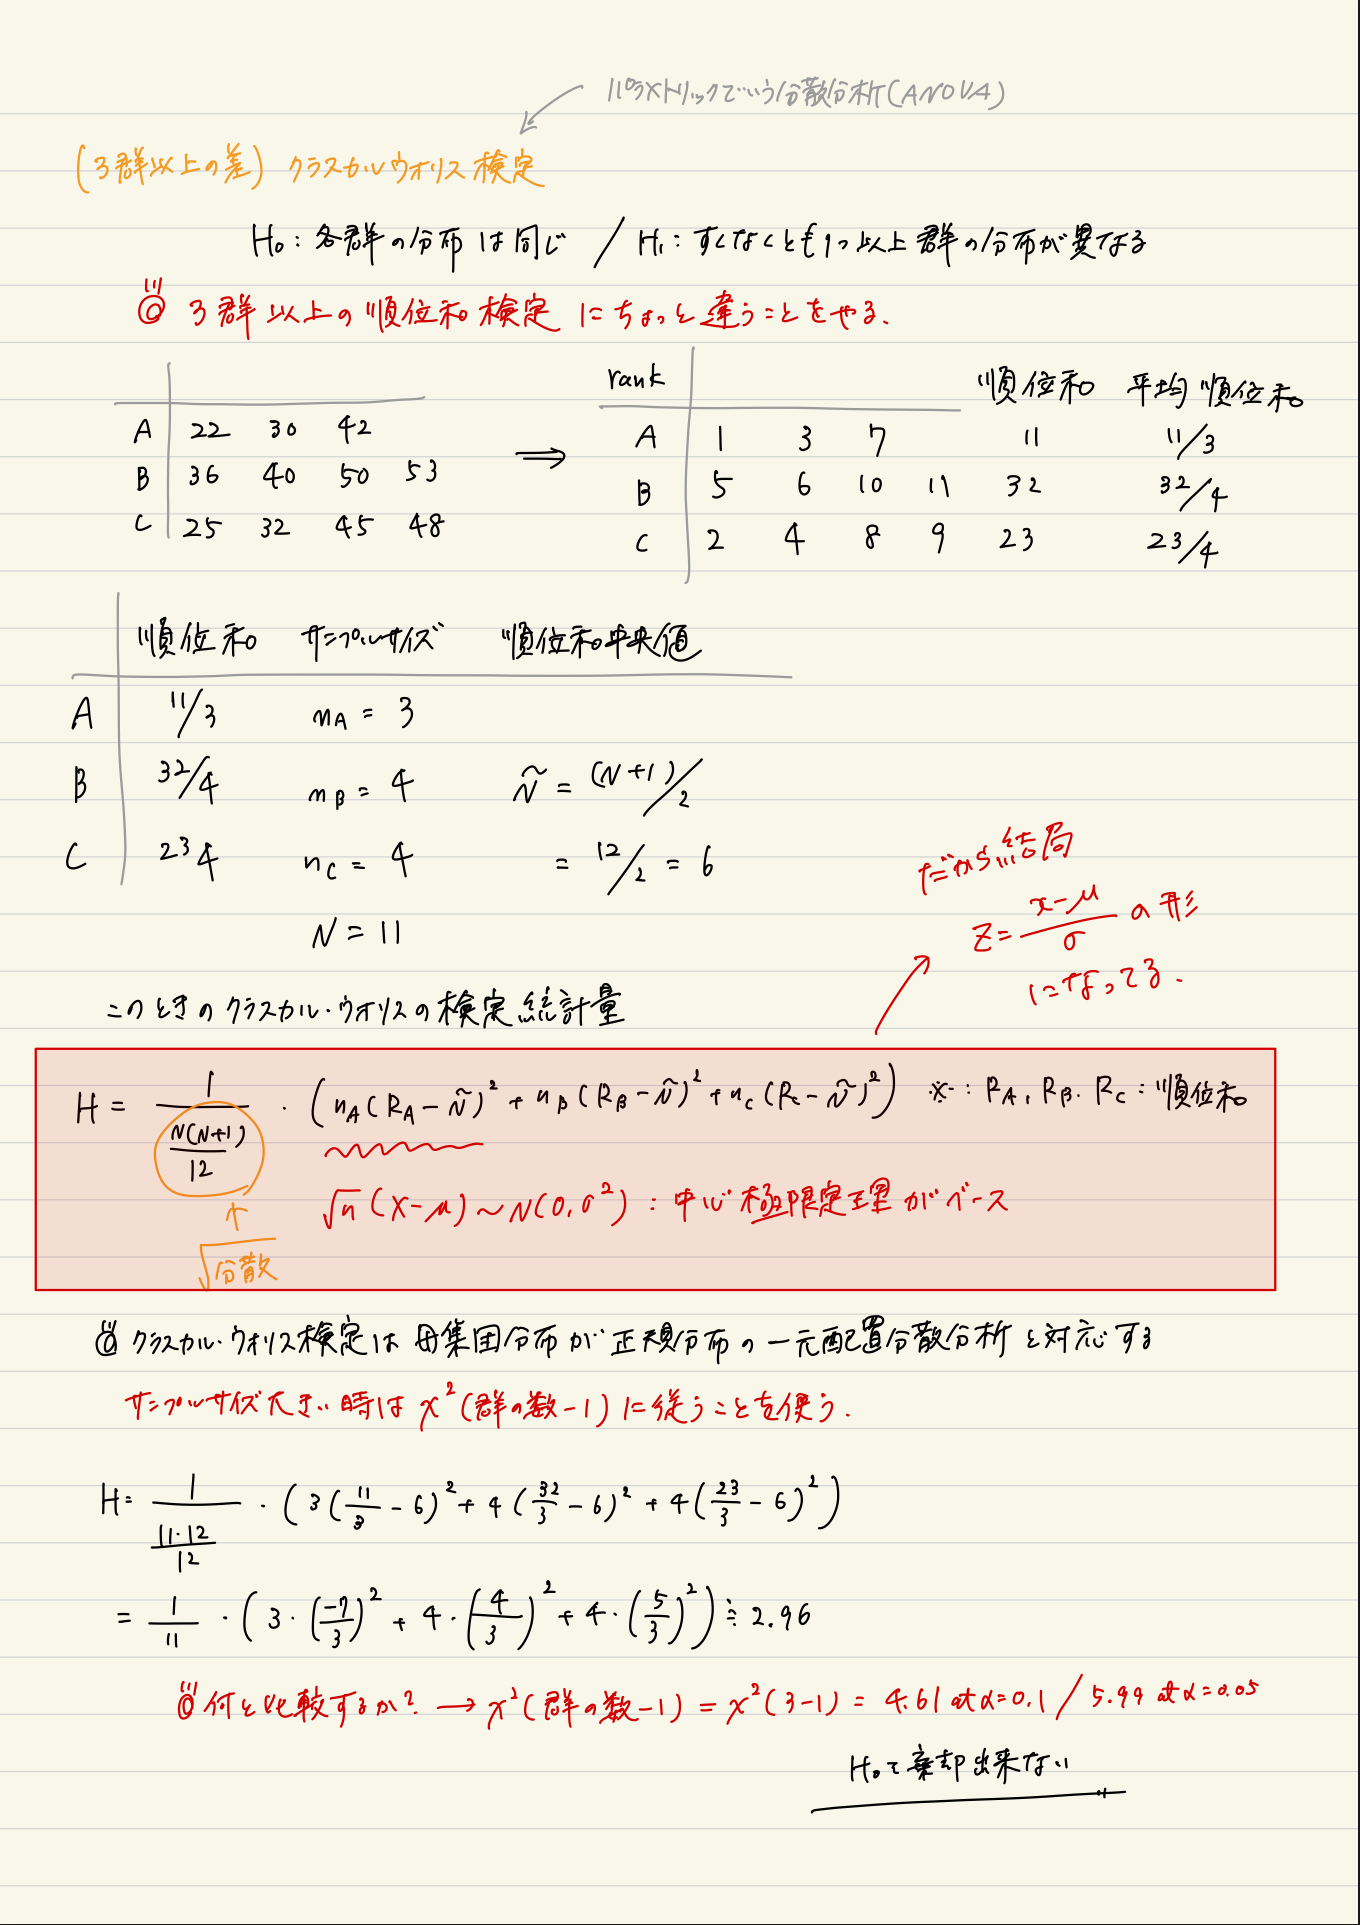 パラメトリックでいう分散分析(ANOVA)
(3群以上の差) クラスカルウォリス検定
H₀：各群の分布は同じ / H₁：すくなくとも1つ以上群の分布が異なる
◎ 3群以上の順位和検定にちょっと違うことをやる.
A 22 30 42
B 36 40 50 53
C 25 32 45 48
⇒
rank 順位和 平均順位和
A 1 3 7 11 11/3
B 5 6 10 11 32 32/4
C 2 4 8 9 23 23/4
順位和 サンプルサイズ 順位和中央値
A 11/3 nA = 3
B 32/4 nB = 4 Ñ = (N+1)/2
C 23 4 nC = 4 = 12/2 = 6
N = 11
だから結局
Z = (x-μ)/σ の形
になってる.
このときのクラスカル・ウォリスの検定統計量
H = 1/(N(N+1)/12) · (nA(RA-Ñ)² + nB(RB-Ñ)² + nC(RC-Ñ)²) ※：RA, RB. RC：順位和
√n(X-μ) ~ N(0, σ²)：中心極限定理がベース
↑
√分散
◎ クラスカル・ウォリス検定は母集団分布が正規分布の一元配置分散分析と対応する
サンプルサイズ大きい時はχ²(群の数-1)に従うことを使う.
H = 1/(11·12/12) · (3(11/3 - 6)² + 4(32/3 - 6)² + 4(23/3 - 6)²)
= 1/11 · (3·(-7/3)² + 4·(4/3)² + 4·(5/3)²) ≒ 2.96
◎ 何と比較するか? → χ²(群の数-1) = χ²(3-1) = 4.61 at α=0.1 / 5.99 at α=0.05
H₀て棄却出来ない